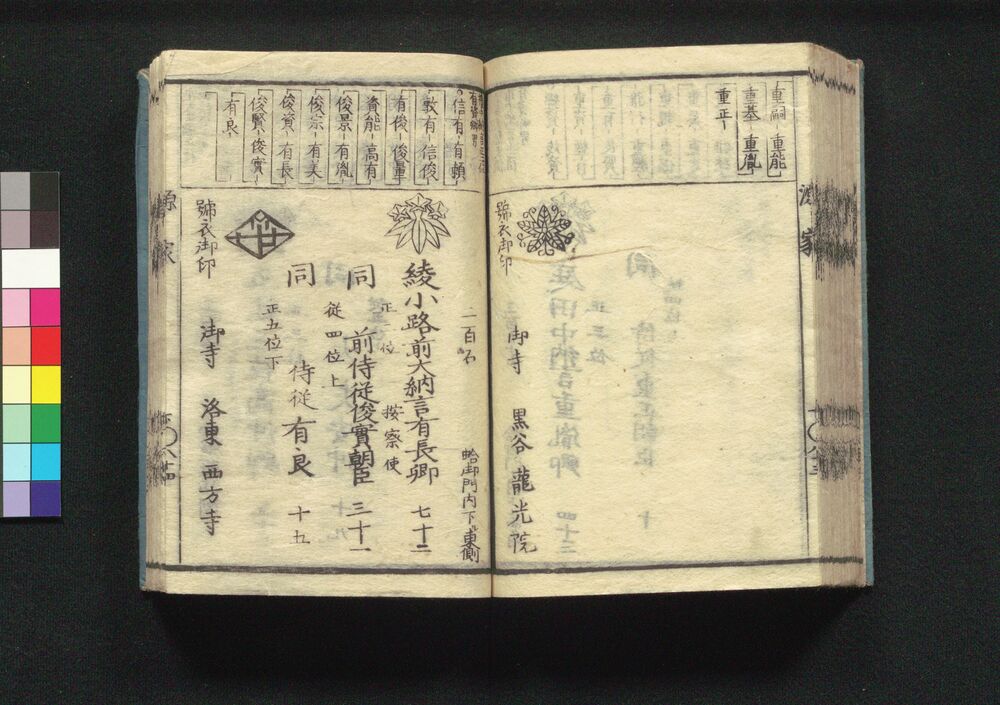 重嗣 重能
重基 重胤
重正
源家
號衣御印
御寺 黒谷 龍光院
信有 有頼
敦有 信俊
有俊 俊量
資能 高有
俊景 有胤
俊宗 有美
俊資 有長
俊賢 俊實
有良
二百石 蛤御門内下ル東側
綾小路前大納言有長卿 七十二
正 位 按察使
同 前侍従俊實朝臣 三十一
従四位上
同 侍従有良 十五
正五位下
號衣御印
御寺 洛東 西方寺
源家